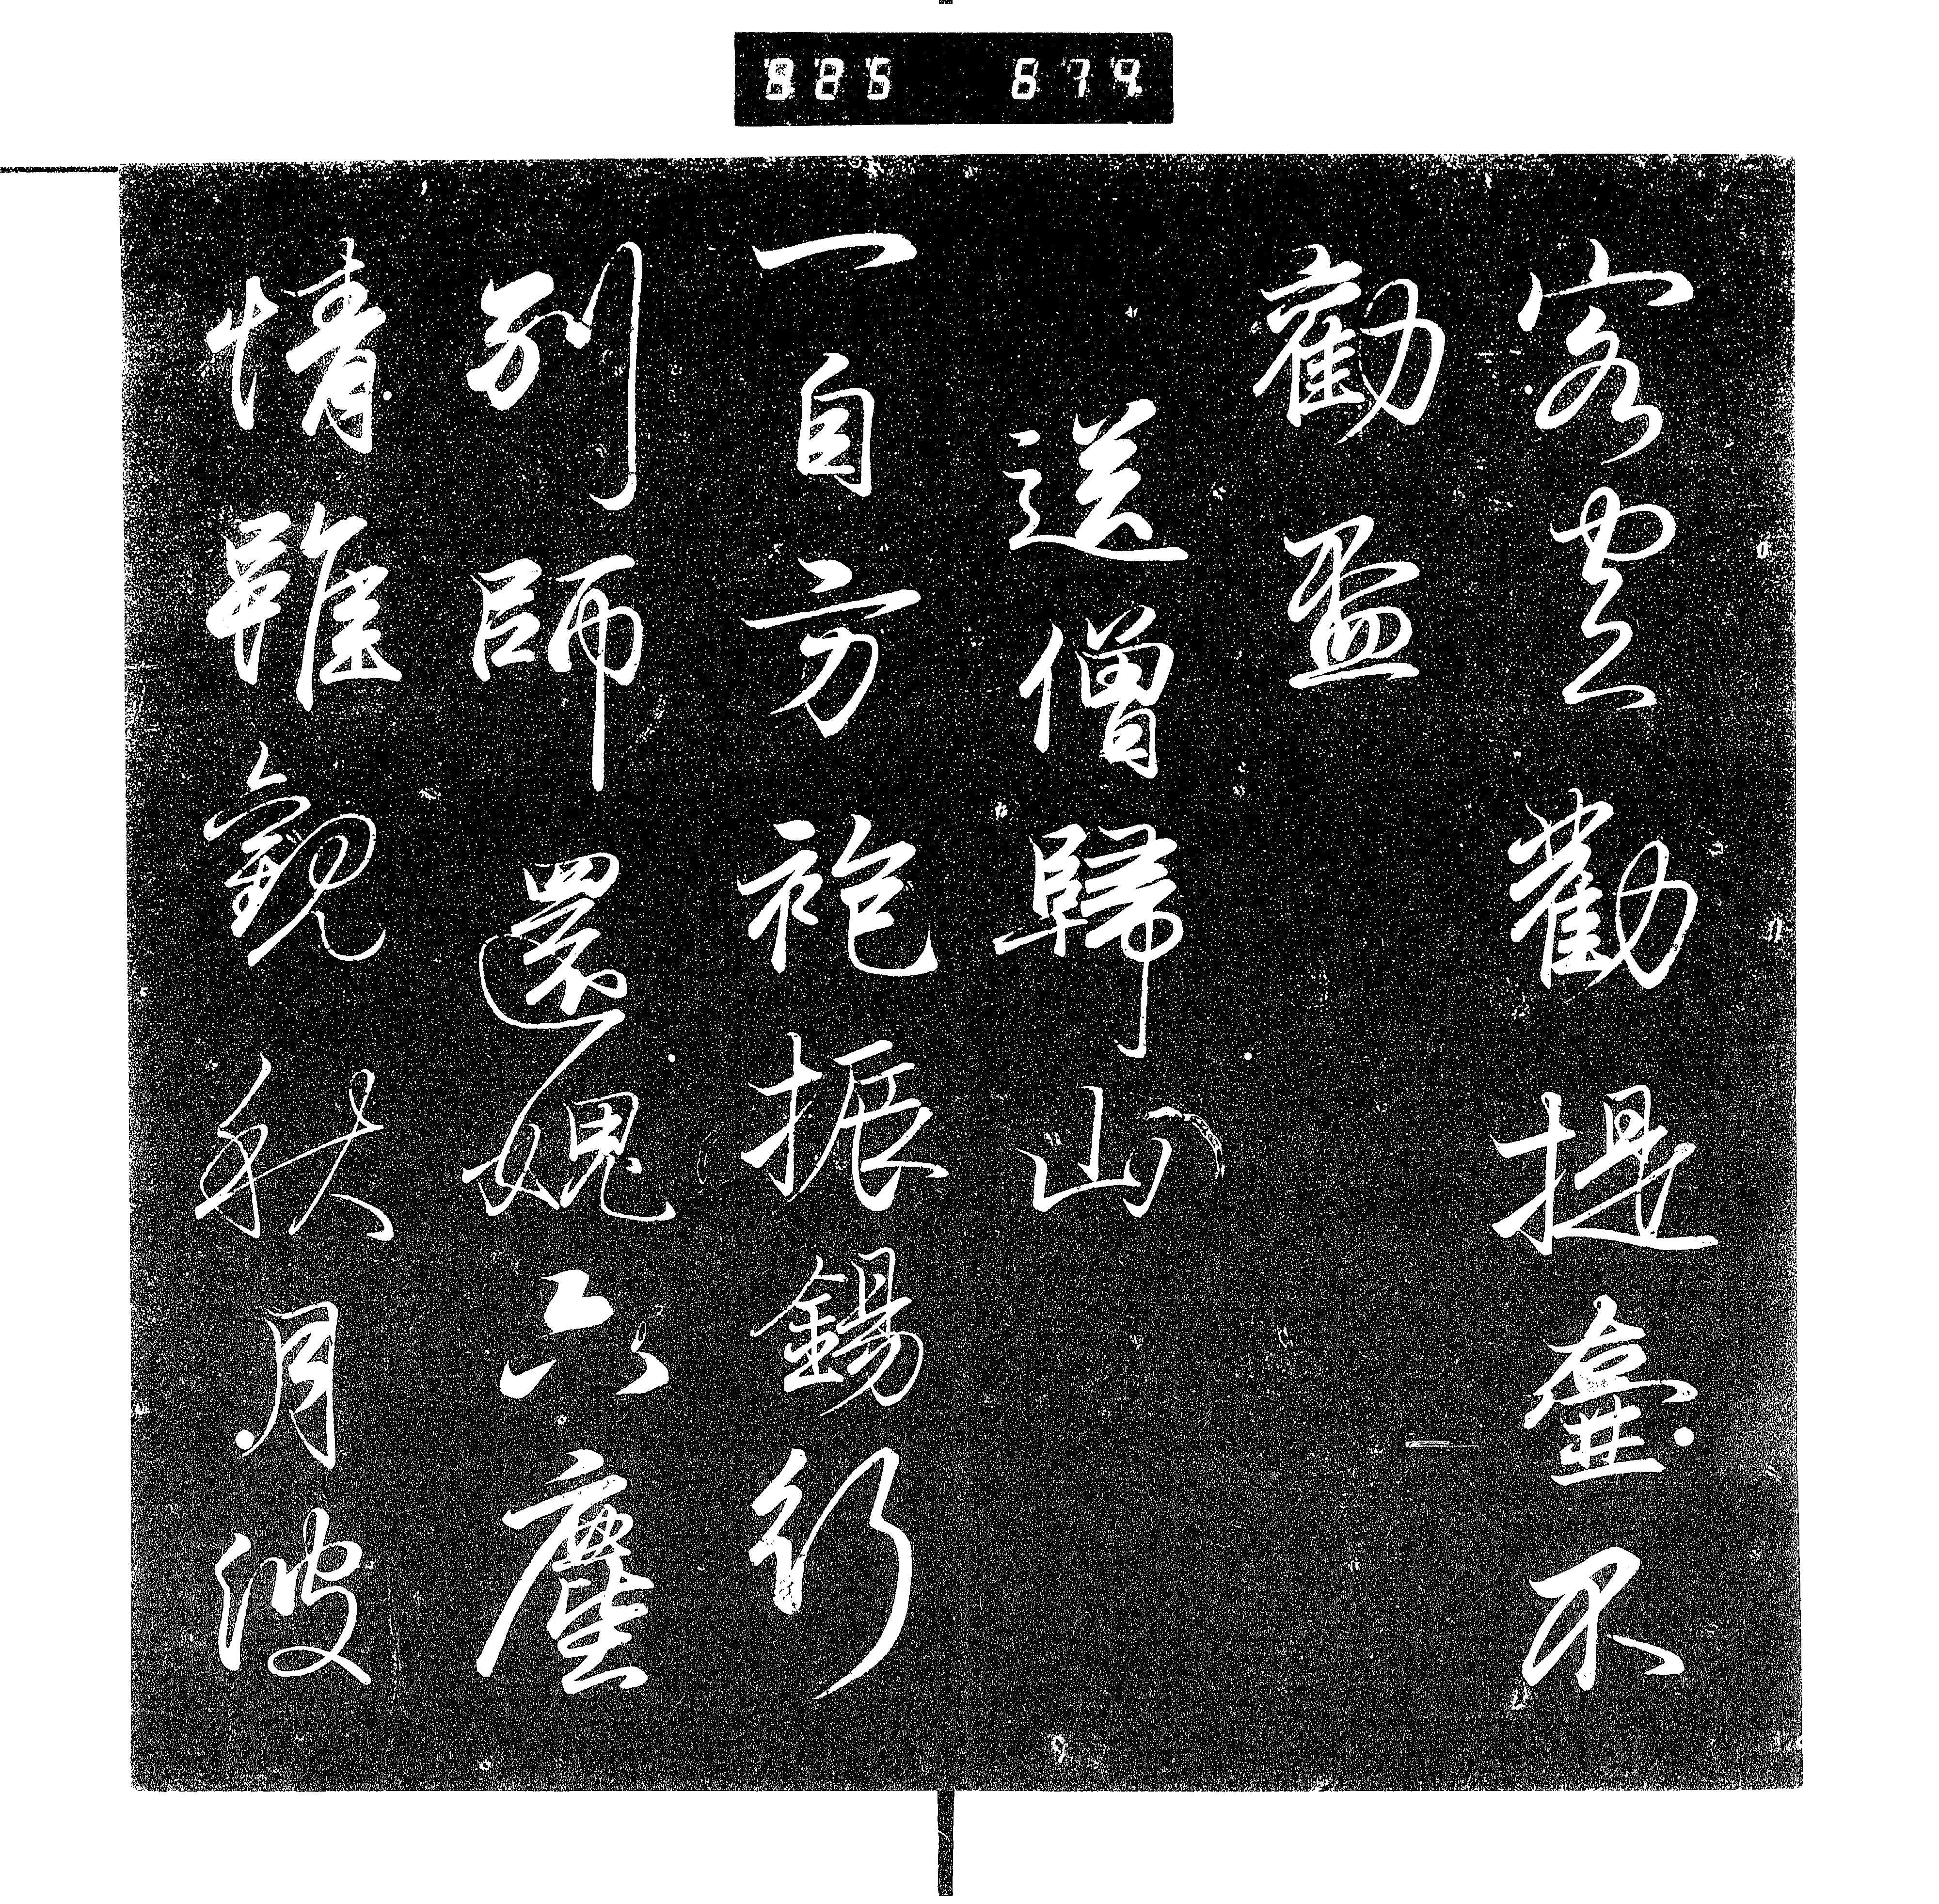 825 674
客勸提壺不
勸盈
送僧歸山
一自方袍振錫行
別師還媿六塵
情雖觀秋月波